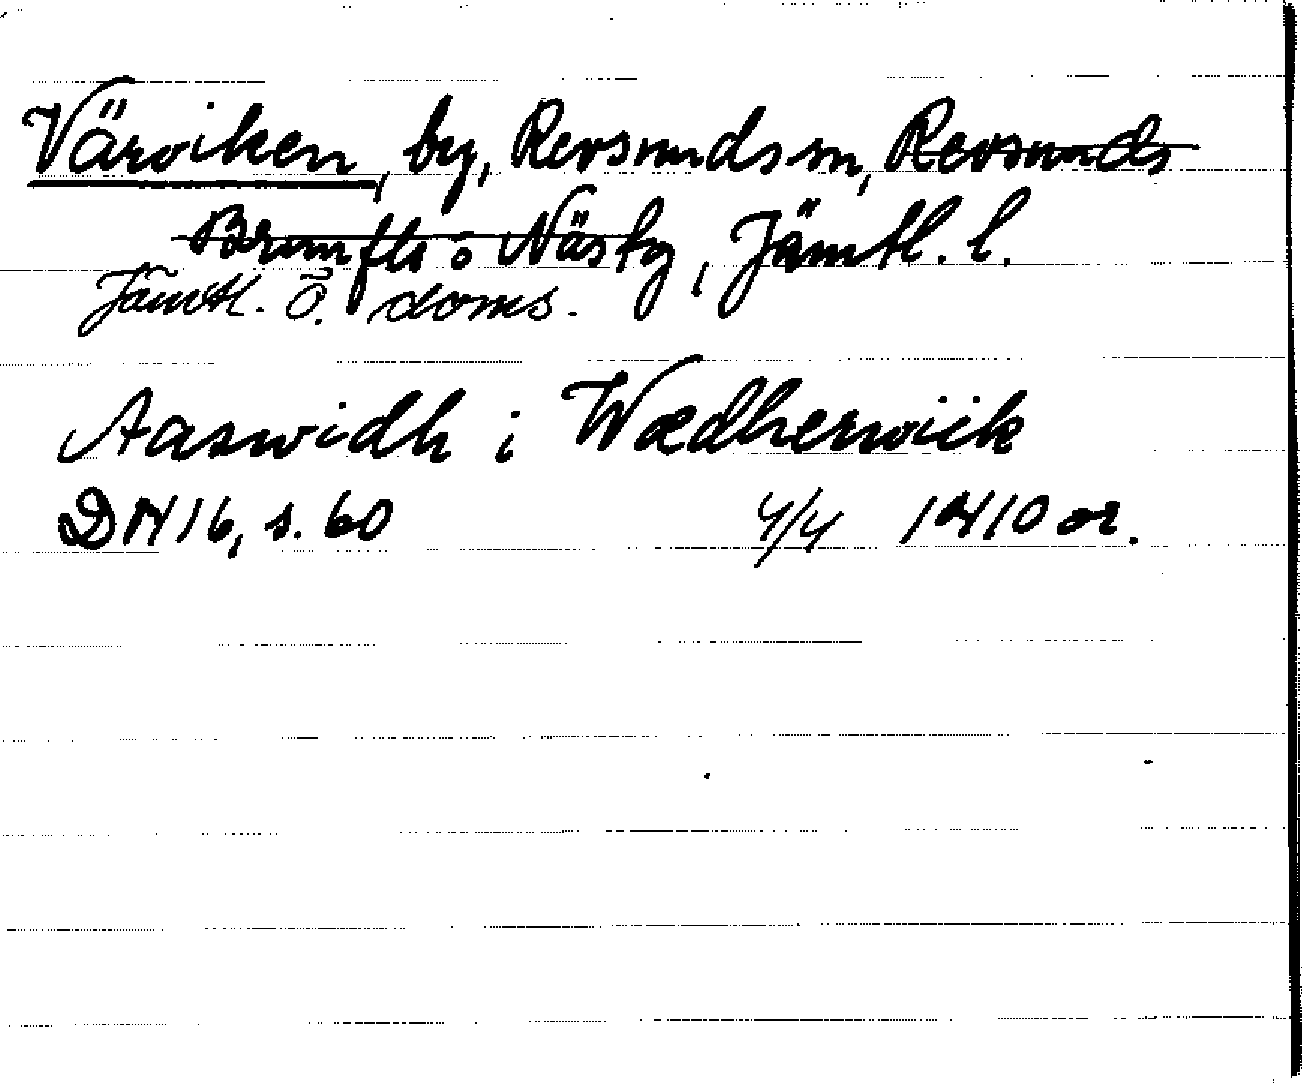 Värviken, by, Revsunds sn, Revsunds
Brunflo o Näs tg, Jämtl. l.
Jämtl. Ö. doms.
Aaswidh i Wædherwiik
DN 16, s. 60 4/4 1410 or.